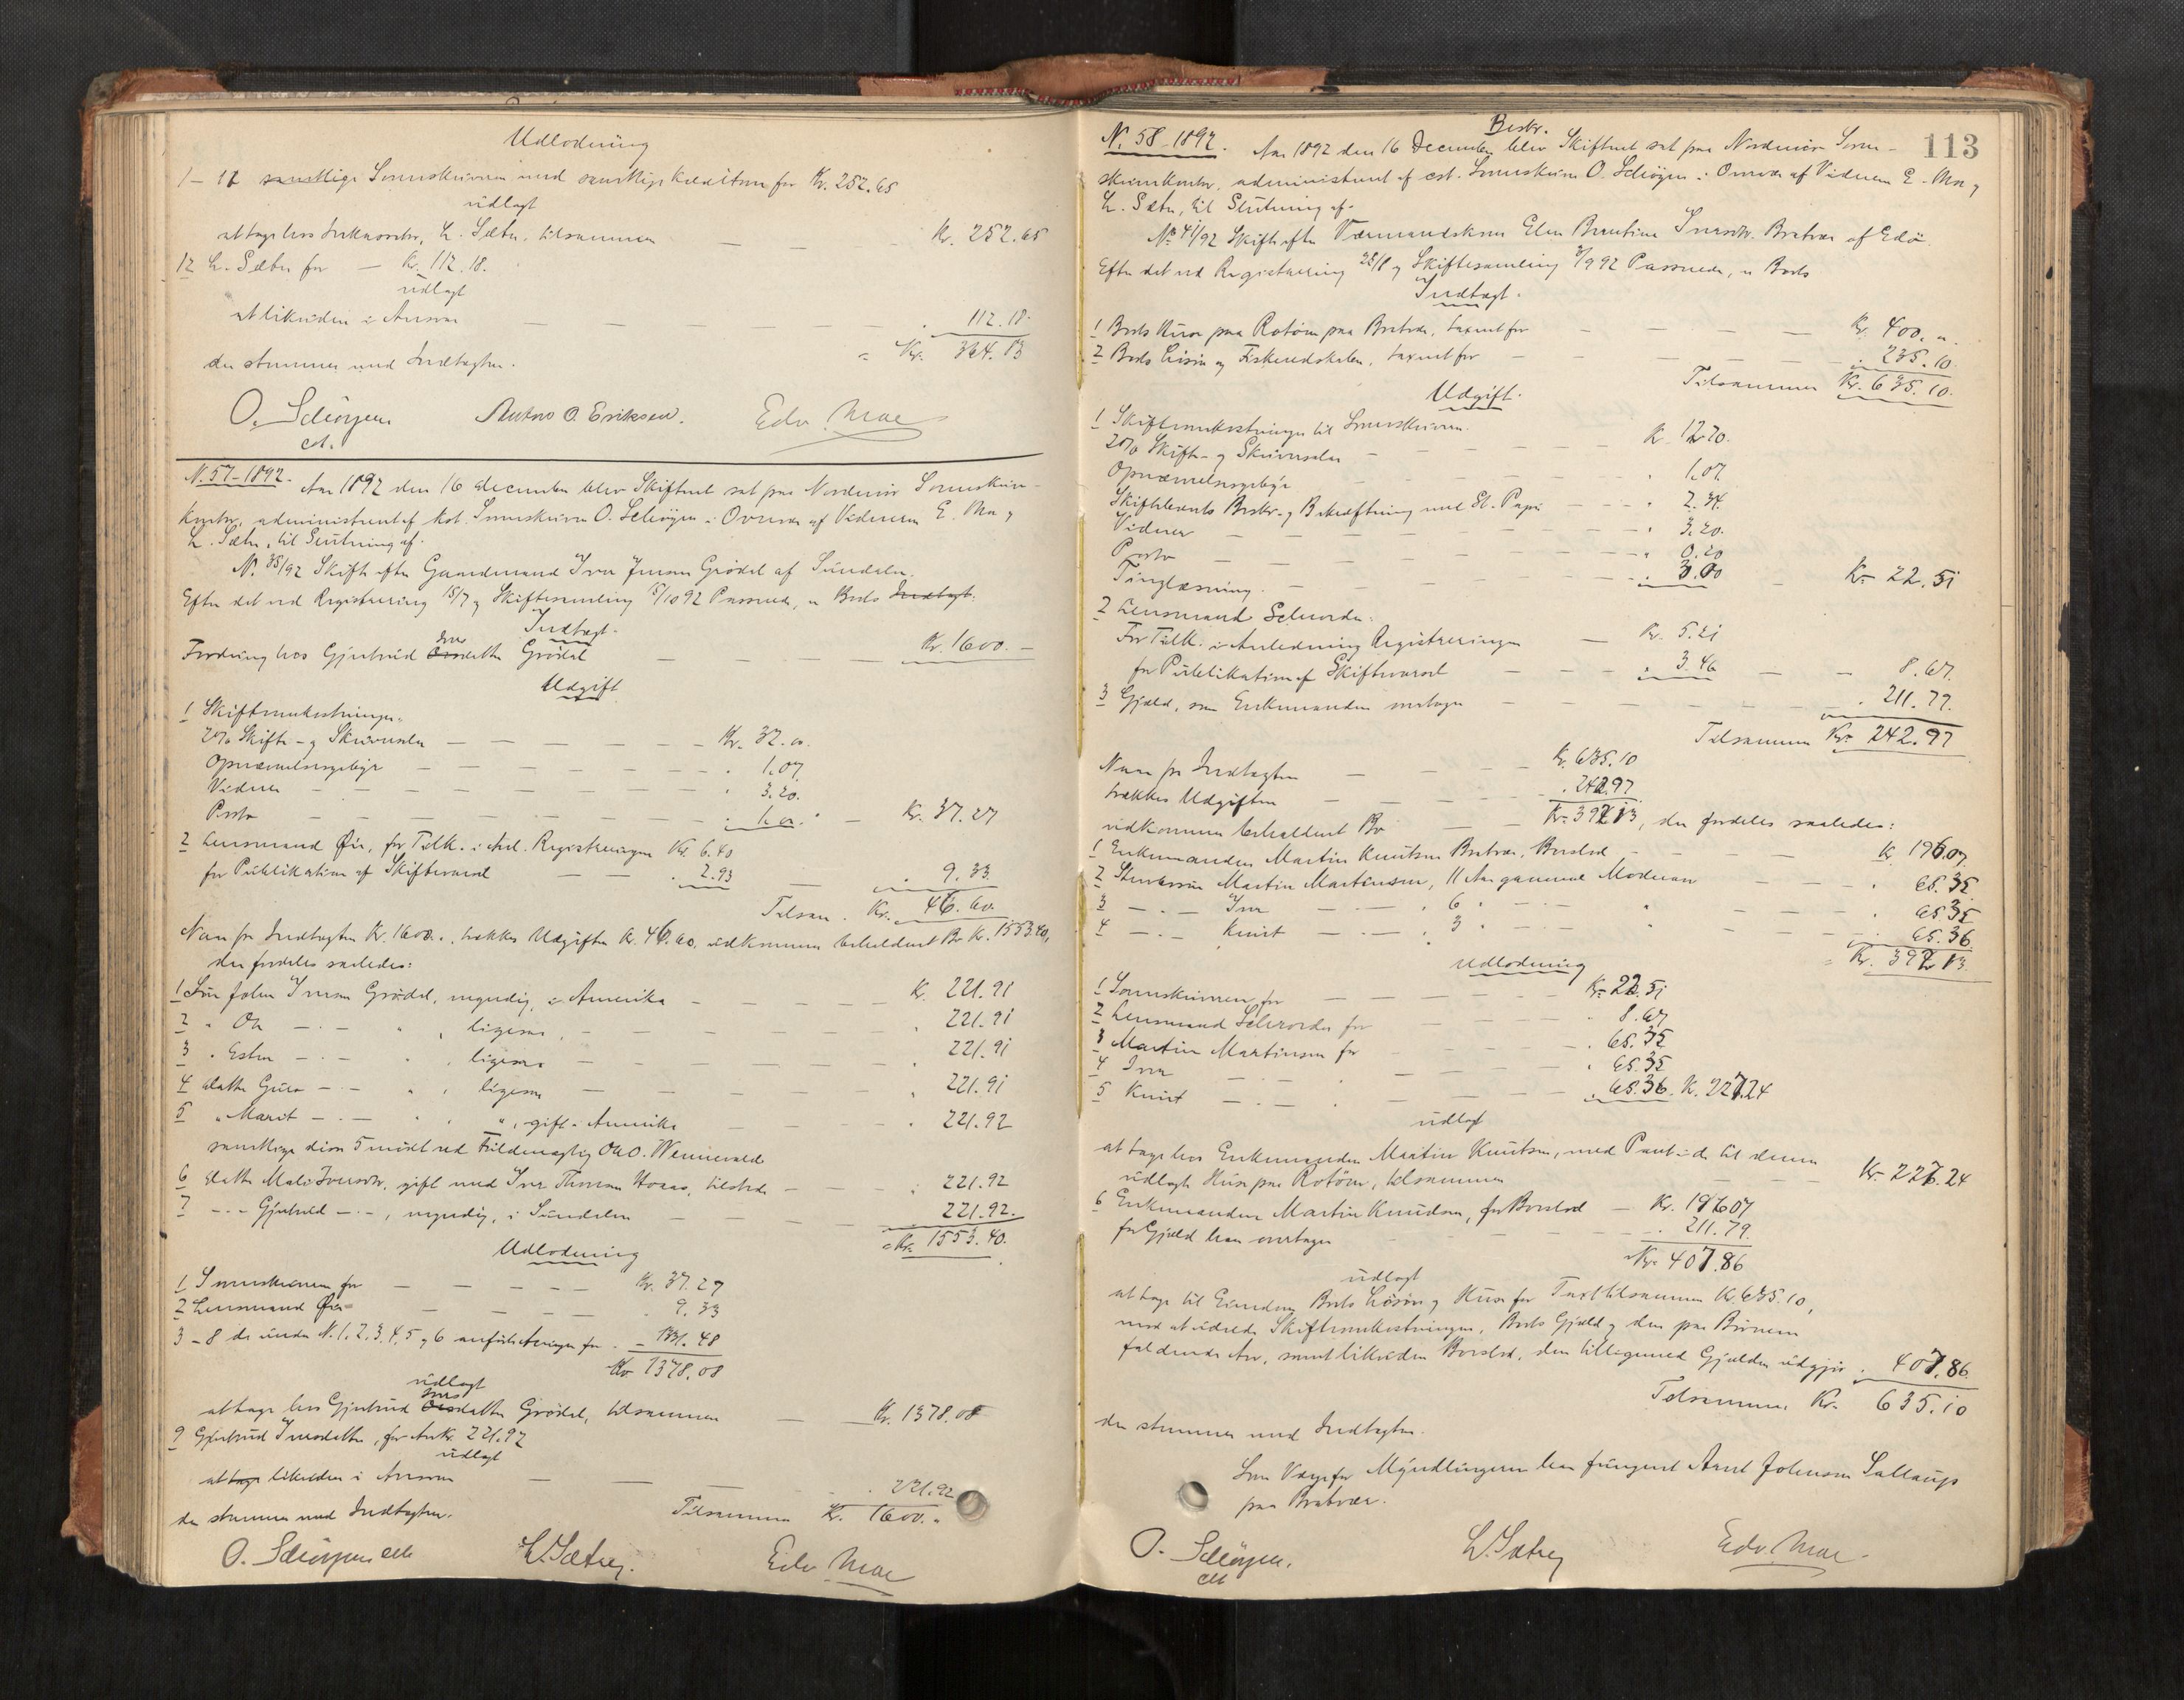 Udlodning
1 – 11 samtlige Sorenskriveren med samtlige Kreditorer for Kr. 252.65
udlagt
at tage hos Inkassator, L. Sæter, tilsammen — — Kr. 252.65
12 L. Sæter for — Kr. 112.18.
udlagt
at likvidere i Ansvar — — — 112.18.
der stemmer med Indtægten. Kr. 364.83
O. Schiøtz
cst.
Anton O. Eriksen. Edv. Moe
N. 57–1892. Aar 1892 den 16 december blev Skifteret sat paa Nordmør Sorenskriver-
kontor, administreret af kst. Sorenskriver O. i Overvær af Vidnerne E. Moe og
L. Sæter, til Slutning af.
N. 35/92 Skifte efter Gaardmand Iver Jensen Grødal af Sundalen.
Efter det ved Registrering 15/7 og Skiftesamling 5/10 92 Passerede, er Boets Indtægt.
Indtægt.
Fordring hos Gjertrud Iversdatter Grødal — — — Kr. 1600. —
Udgift
1 Skifteomkostninger.
2% Skifte- og Skriversaler — — — Kr. 32.00.
Opnævnelsesgebyr — — — " 1.07
Vidner — — — " 3.20.
Porto — — — " 1.00. — Kr. 37.27
2 Lensmand Øie, for Tilk. i Anl. Registreringen Kr. 6.40
for Publikation af Skiftevarsel — — 2.93 — 9.33
Tilsam. Kr. 46.60.
Naar fra Indtægten Kr. 1600.. trækkes Udgiften Kr. 46.60, udkommer beholdent Bo Kr. 1553.40,
der fordeles saaledes:
1 Søn John Iversen Grødal, myndig, i Amerika — — — Kr. 221.91
2 " Ole — . — " , ligesaa, — — — " 221.91
3 " Esten — . — " , ligesaa — — — " 221.91
4 datter Guro — . — " , ligesaa — — — " 221.91
5 " Marit — . — " , gift i Amerika — — " 221.92
samtlige disse 5 mødt ved Fuldmægtig Ole O. Wennevold
6 datter Mali Iversdtr. gift med Iver Hoaas, tilstede — — 221.92
7 — . — Gjertrud — . — , myndig, i Sundalen — — 221.92.
Kr. 1553.40.
Udlodning
1 Sorenskriveren for — — — Kr. 37.27
2 Lensmand Øie — — — 9.33
3 – 8 de under N. 1, 2, 3, 4, 5 og 6 anførte Arvinger for — 1331.48
Kr 1378.08
udlagt
at tage hos Gjertrud Iversdatter Grødal, tilsammen — Kr. 1378.08
9 Gjertrud Iversdatter, for Arv Kr. 221.92
udlagt
at tage likvidere i Ansvar — — — 221.92
der stemmer med Indtægten. Tilsammen Kr. 1600.
O. cst L. Sætrey. Edv. Moe
113
Beskr.
N. 58–1892. Aar 1892 den 16 December blev Skifteret sat paa Nordmør Soren-
skriverkontor, administreret af cst. Sorenskriver O. i Overvær af Vidnerne E. Moe og
L. Sæter, til Slutning af.
No 41/92 Skifte efter Værmandskone Elen Iversdtr. Bratvær af Edø.
Efter det ved Registrering 22/8 og Skiftesamling /9 92 Passerede, er Boets
Indtægt.
1 Boets Huse paa Rotøen paa Bratvær, taxeret for — — — Kr. 400. "
2 Boets Løsøre og Fiskeredskaber, taxeret for — — — " 235.10.
Tilsammen Kr. 635.10.
Udgift.
1 Skifteomkostninger til Sorenskriveren.
2% Skifte- og Skriversaler — — — Kr. 12.70.
Opnævnelsesgebyr — — — " 1.07.
Skiftebrevets Beskr. og Bekræftning med St. Papir — — " 2.34.
Vidner — — — " 3.20.
Porto — — — " 0.20
Tinglæsning. — — — " 3.00 — Kr. 22.51
2 Lensmand Schrøder:
For Tilk. i Anledning Registreringen — Kr. 5.21
for Publikation af Skiftevarsel — — " 3.46 — 8.67.
3 Gjæld, som Enkemanden overtager — — — " 211.79.
Tilsammen Kr. 242.97
Naar fra Indtægten — — Kr. 635.10
trækkes Udgiften — — " 242.97
udkommer beholdent Bo — — Kr. 392.13, der fordeles saaledes:
1 Enkemanden Martin Knutsen Bratvær, Boeslod — — Kr 196.07.
2 Sønnen Martin Martinsen, 11 Aar gammel Modearv — — " 65.35
3 — . — Iver — . — , 6 " — " — — " 65.35
4 — . — Knut — . — , 3 " — " — — " 65.36
Kr. 392.13.
Udlodning
1 Sorenskriveren for — — — Kr. 22.51
2 Lensmand Schrøder for — — " 8.67
3 Martin Martinsen for — — " 65.35
4 Iver — . — " — — " 65.35
5 Knut — . — " — — " 65.36. Kr. 227.24
udlagt
at tage hos Enkemanden Martin Knutsen, med Panteret i de til denne
udlagte Huse paa Rotøen, tilsammen — — Kr 227.24
6 Enkemanden Martin Knudsen, for Boeslod — Kr. 196.07
for Gjæld han overtager — — " 211.79.
Kr. 407.86
udlagt
at tage til Eiendom Boets Løsøre og Huse for Taxt tilsammen Kr. 635.10,
mod at udrede Skifteomkostninger, Boets Gjæld og den paa Børnene
faldende Arv, samt likvidere Boeslod, der tilligemed Gjælden udgjør " 407.86.
Tilsammen Kr. 635.10
der stemmer med Indtægten.
Som Værge for Myndlingerne har fungeret Arnt Johnsen
paa Bratvær.
O. cst L. Sætrey Edv. Moe